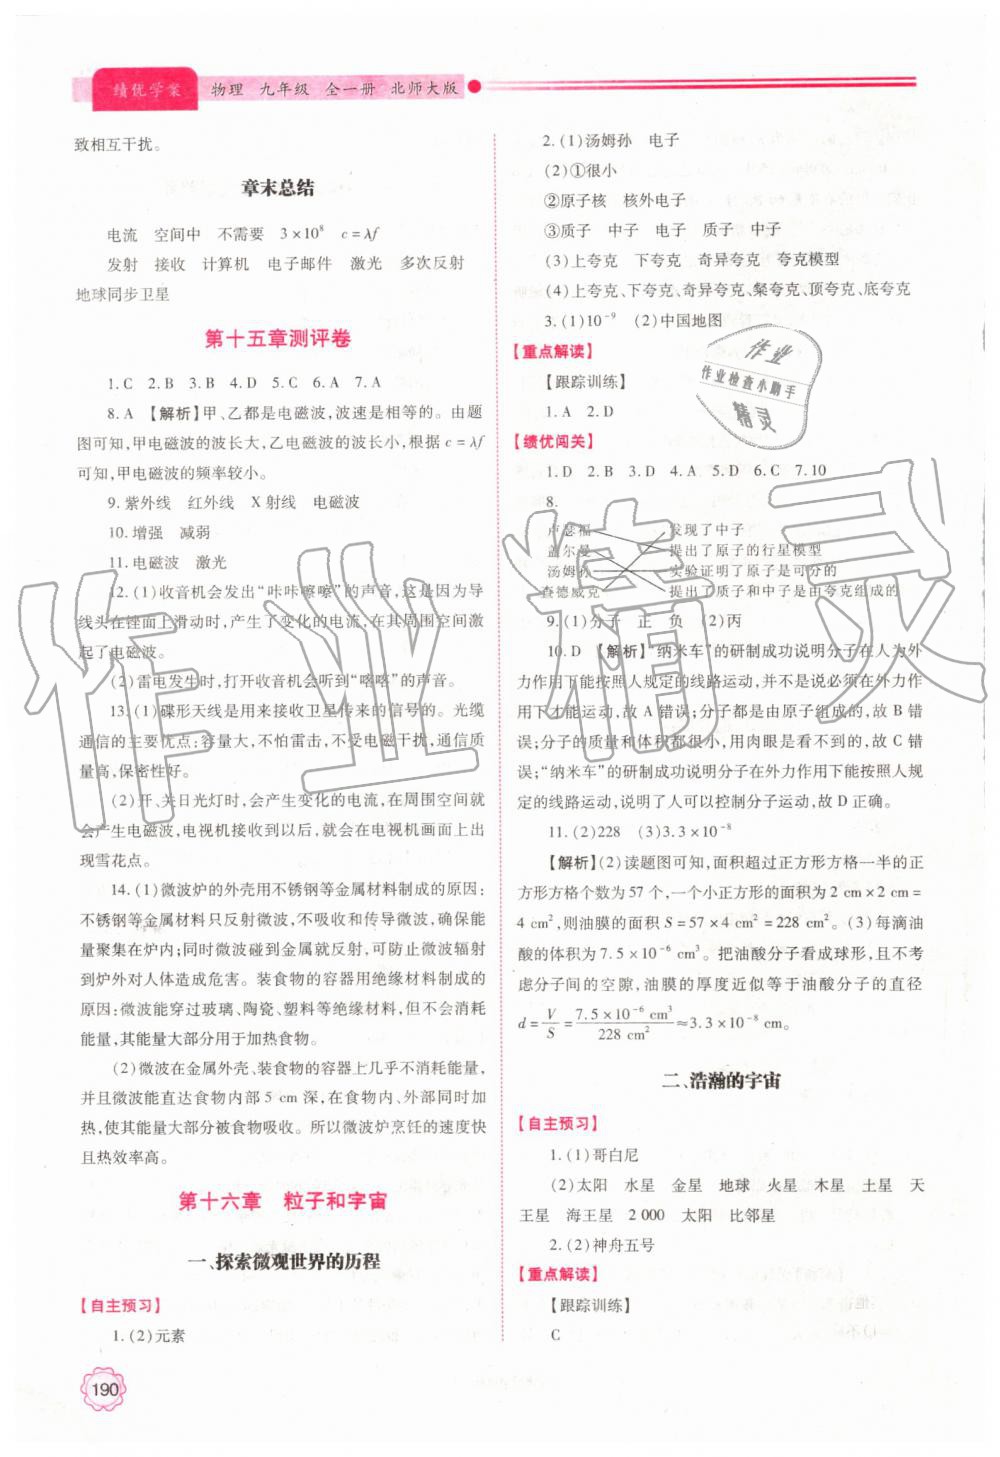 绩优学案 物理 九年级 全一册 北师大版
致相互干扰。
章末总结
电流 空间中 不需要 3×10⁸ c=λf
发射 接收 计算机 电子邮件 激光 多次反射
地球同步卫星
第十五章测评卷
1.C 2.B 3.B 4.D 5.C 6.A 7.A
8.A 【解析】甲、乙都是电磁波,波速是相等的。由题
图可知,甲电磁波的波长大,乙电磁波的波长小,根据 c=λf
可知,甲电磁波的频率较小。
9.紫外线 红外线 X射线 电磁波
10.增强 减弱
11.电磁波 激光
12.(1)收音机会发出“咔咔嚓嚓”的声音,这是由于导
线头在锉面上滑动时,产生了变化的电流,在其周围空间激
起了电磁波。
(2)雷电发生时,打开收音机会听到“喀喀”的声音。
13.(1)碟形天线是用来接收卫星传来的信号的。光缆
通信的主要优点:容量大,不怕雷击,不受电磁干扰,通信质
量高,保密性好。
(2)开、关日光灯时,会产生变化的电流,在周围空间就
会产生电磁波,电视机接收到以后,就会在电视机画面上出
现雪花点。
14.(1)微波炉的外壳用不锈钢等金属材料制成的原因:
不锈钢等金属材料只反射微波,不吸收和传导微波,确保能
量聚集在炉内;同时微波碰到金属就反射,可防止微波辐射
到炉外对人体造成危害。装食物的容器用绝缘材料制成的
原因:微波能穿过玻璃、陶瓷、塑料等绝缘材料,但不会消耗
能量,其能量大部分用于加热食物。
(2)微波在金属外壳、装食物的容器上几乎不消耗能量,
并且微波能直达食物内部5 cm深,在食物内、外部同时加
热,使其能量大部分被食物吸收。所以微波炉烹饪的速度快
且热效率高。
第十六章 粒子和宇宙
一、探索微观世界的历程
【自主预习】
1.(2)元素
190
2.(1)汤姆孙 电子
(2)①很小
②原子核 核外电子
③质子 中子 电子 质子 中子
(3)上夸克 下夸克 奇异夸克 夸克模型
(4)上夸克、下夸克、奇异夸克、粲夸克、顶夸克、底夸克
3.(1)10⁻⁹ (2)中国地图
【重点解读】
【跟踪训练】
1.A 2.D
【绩优闯关】
1.D 2.B 3.D 4.A 5.D 6.C 7.10
8.
卢瑟福 发现了中子
盖尔曼 提出了原子的行星模型
汤姆孙 实验证明了原子是可分的
查德威克 提出了质子和中子是由夸克组成的
9.(1)分子 正 负 (2)丙
10.D 【解析】“纳米车”的研制成功说明分子在人为外
力作用下能按照人规定的线路运动,并不是说必须在外力作
用下才能运动,故A错误;分子都是由原子组成的,故B错
误;分子的质量和体积都很小,用肉眼是看不到的,故C错
误;“纳米车”的研制成功说明分子在外力作用下能按照人规
定的线路运动,说明了人可以控制分子运动,故D正确。
11.(2)228 (3)3.3×10⁻⁸
【解析】(2)读题图可知,面积超过正方形方格一半的正
方形方格个数为57个,一个小正方形的面积为2 cm×2 cm=
4 cm²,则油膜的面积S=57×4 cm²=228 cm²。(3)每滴油
酸的体积为7.5×10⁻⁶ cm³。把油酸分子看成球形,且不考
虑分子间的空隙,油膜的厚度近似等于油酸分子的直径
d=V/S=7.5×10⁻⁶ cm³/228 cm²≈3.3×10⁻⁸ cm。
二、浩瀚的宇宙
【自主预习】
1.(1)哥白尼
(2)太阳 水星 金星 地球 火星 木星 土星 天
王星 海王星 2 000 太阳 比邻星
2.(2)神舟五号
【重点解读】
【跟踪训练】
C
作业
作业检查小助手
精灵
作业精灵